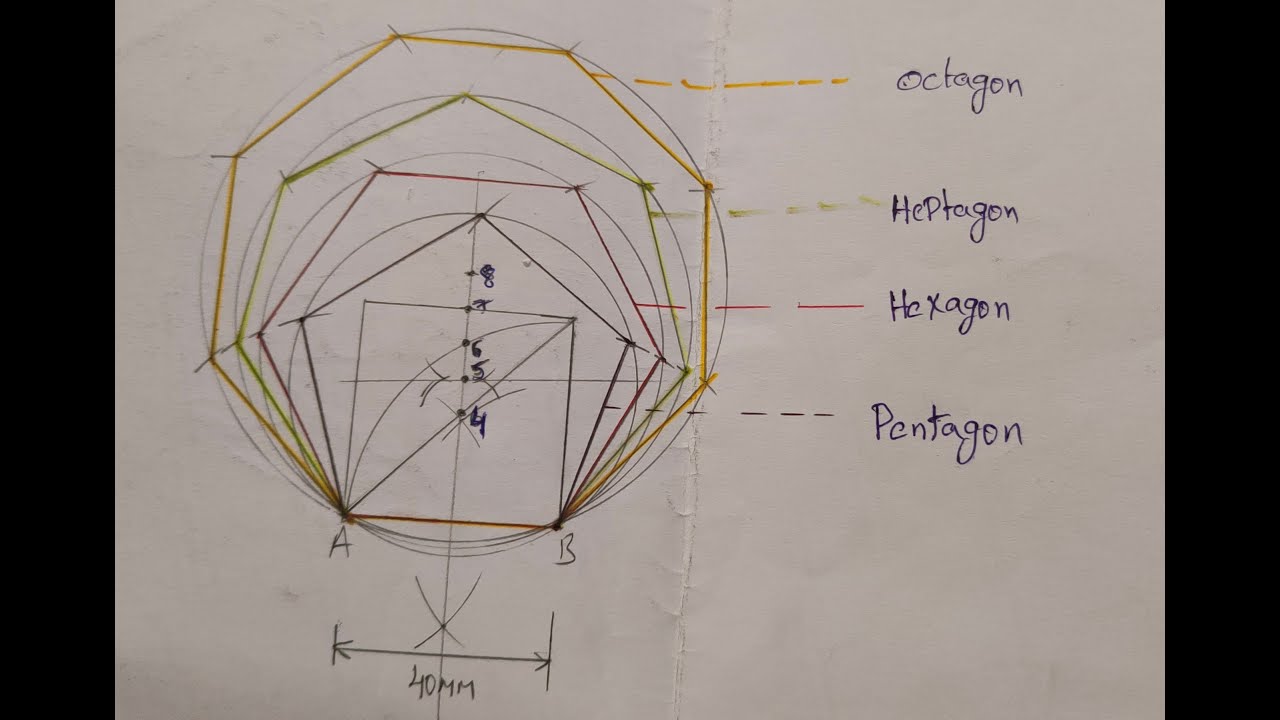 Octagon
HePtagon
Hexagon
Pentagon
8
7
6
5
4
A
B
40mm